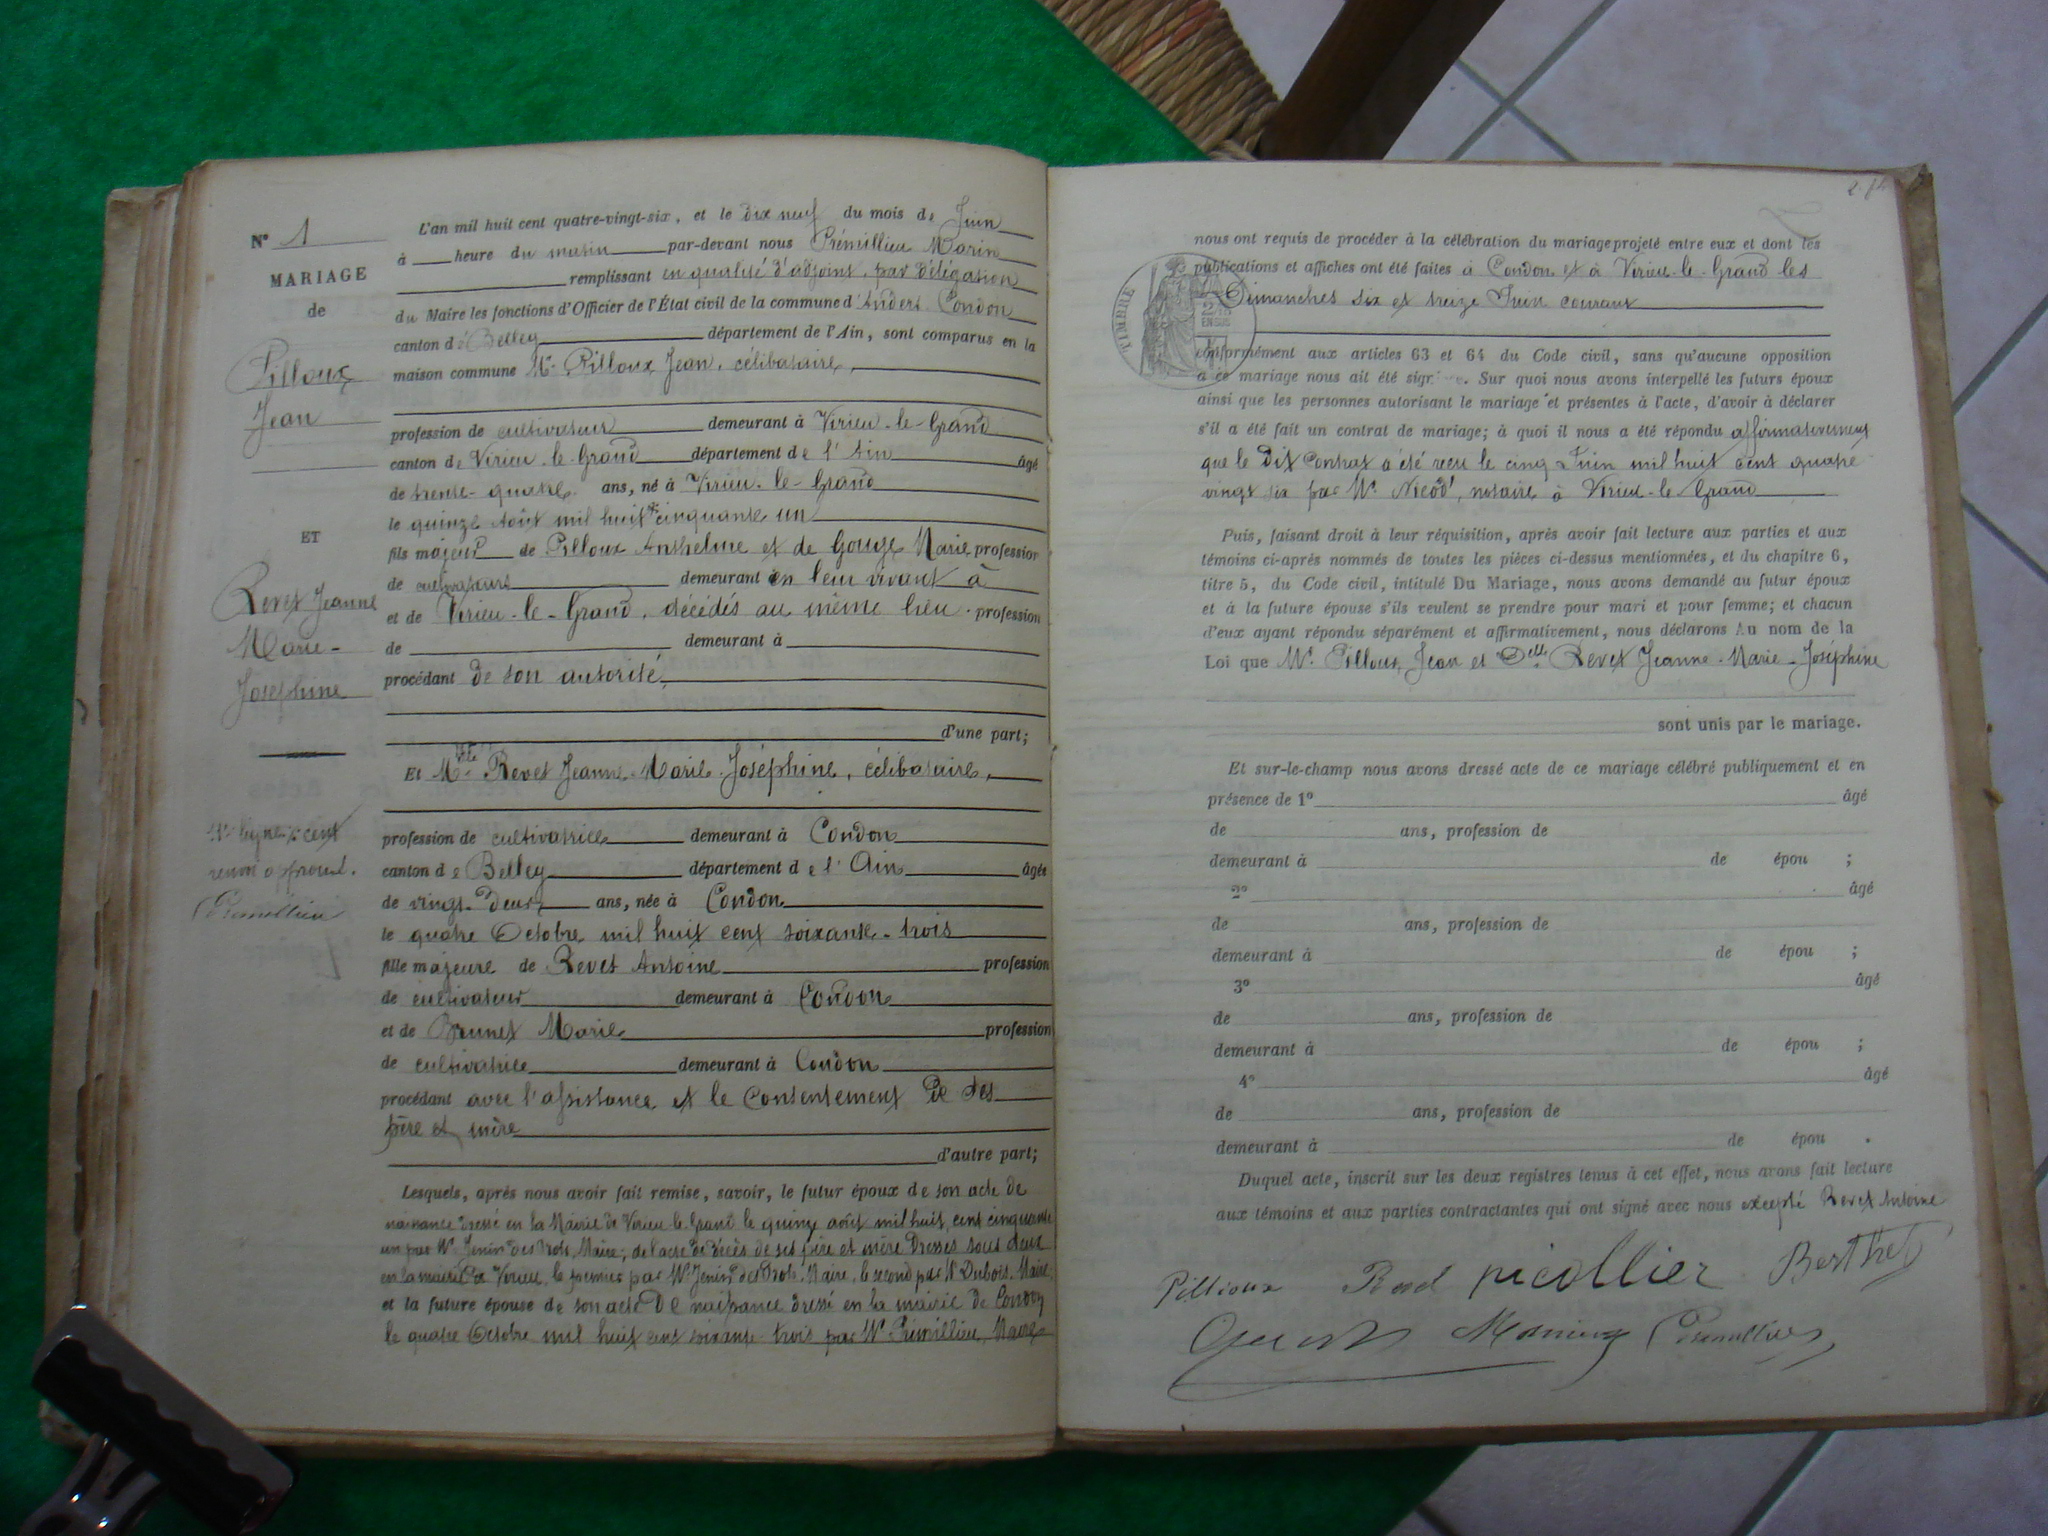 N° 1
MARIAGE
de
Pilloux
Jean
ET
Revet Jeanne
Marie-
Joséphine
L'an mil huit cent quatre-vingt-six, et le dix neuf du mois de Juin
à heure du matin par-devant nous Prémillieu Marin
remplissant en qualité d'adjoint, par délégation
du Maire les fonctions d'Officier de l'État civil de la commune d'Andert-Condon
canton de Belley département de l'Ain, sont comparus en la
maison commune Mr Pilloux Jean, célibataire,
profession de cultivateur demeurant à Virieu-le-Grand
canton de Virieu-le-Grand département de l'Ain âgé
de trente-quatre ans, né à Virieu-le-Grand
le quinze Août mil huit cinquante un
fils majeur de Pilloux Anthelme et de Gouge Marie profession
de cultivateurs demeurant en leur vivant à
et de Virieu-le-Grand, décédés au même lieu. profession
de demeurant à
procédant de son autorité
d'une part;
Et Mlle Revet Jeanne-Marie-Joséphine, célibataire,
profession de cultivatrice demeurant à Condon
canton de Belley département de l'Ain âgée
de vingt-deux ans, née à Condon
le quatre Octobre mil huit cent soixante-trois
fille majeure de Revet Antoine profession
de cultivateur demeurant à Condon
et de Brunet Marie profession
de cultivatrice demeurant à Condon
procédant avec l'assistance et le consentement de ses
père et mère
d'autre part;
Lesquels, après nous avoir fait remise, savoir, le futur époux de son acte de
naissance dressé en la Mairie de Virieu-le-Grand le quinze août mil huit cent cinquante
un par Mr Jenin Maire; de l'acte de décès de ses père et mère dressés tous deux
en la mairie de Virieu, le premier par Mr Jenin Maire, le second par Mr Dubois, Maire
et la future épouse de son acte de naissance dressé en la mairie de Condon
le quatre Octobre mil huit cent soixante-trois par Mr Prémillieu, Maire
ligne cent
renvoi approuvé.
Prémillieu
nous ont requis de procéder à la célébration du mariage projeté entre eux et dont les
publications et affiches ont été faites à Condon et à Virieu-le-Grand les
Dimanches six et treize Juin courant
TIMBRE
conformément aux articles 63 et 64 du Code civil, sans qu'aucune opposition
à ce mariage nous ait été sign. Sur quoi nous avons interpellé les futurs époux
ainsi que les personnes autorisant le mariage et présentes à l'acte, d'avoir à déclarer
s'il a été fait un contrat de mariage; à quoi il nous a été répondu affirmativement
que le dit contrat a été reçu le cinq Juin mil huit cent quatre
vingt six par Mr Nicod, notaire à Virieu-le-Grand
Puis, faisant droit à leur réquisition, après avoir fait lecture aux parties et aux
témoins ci-après nommés de toutes les pièces ci-dessus mentionnées, et du chapitre 6,
titre 5, du Code civil, intitulé Du Mariage, nous avons demandé au futur époux
et à la future épouse s'ils veulent se prendre pour mari et pour femme; et chacun
d'eux ayant répondu séparément et affirmativement, nous déclarons Au nom de la
Loi que Mr Pilloux Jean et Delle Revet Jeanne-Marie-Joséphine
sont unis par le mariage.
Et sur-le-champ nous avons dressé acte de ce mariage célébré publiquement et en
présence de 1° âgé
de ans, profession de
demeurant à de épou ;
2° âgé
de ans, profession de
demeurant à de épou ;
3° âgé
de ans, profession de
demeurant à de épou ;
4° âgé
de ans, profession de
demeurant à de épou .
Duquel acte, inscrit sur les deux registres tenus à cet effet, nous avons fait lecture
aux témoins et aux parties contractantes qui ont signé avec nous excepté Revet Antoine
Pillioux picollier Berthet
Prémillieu